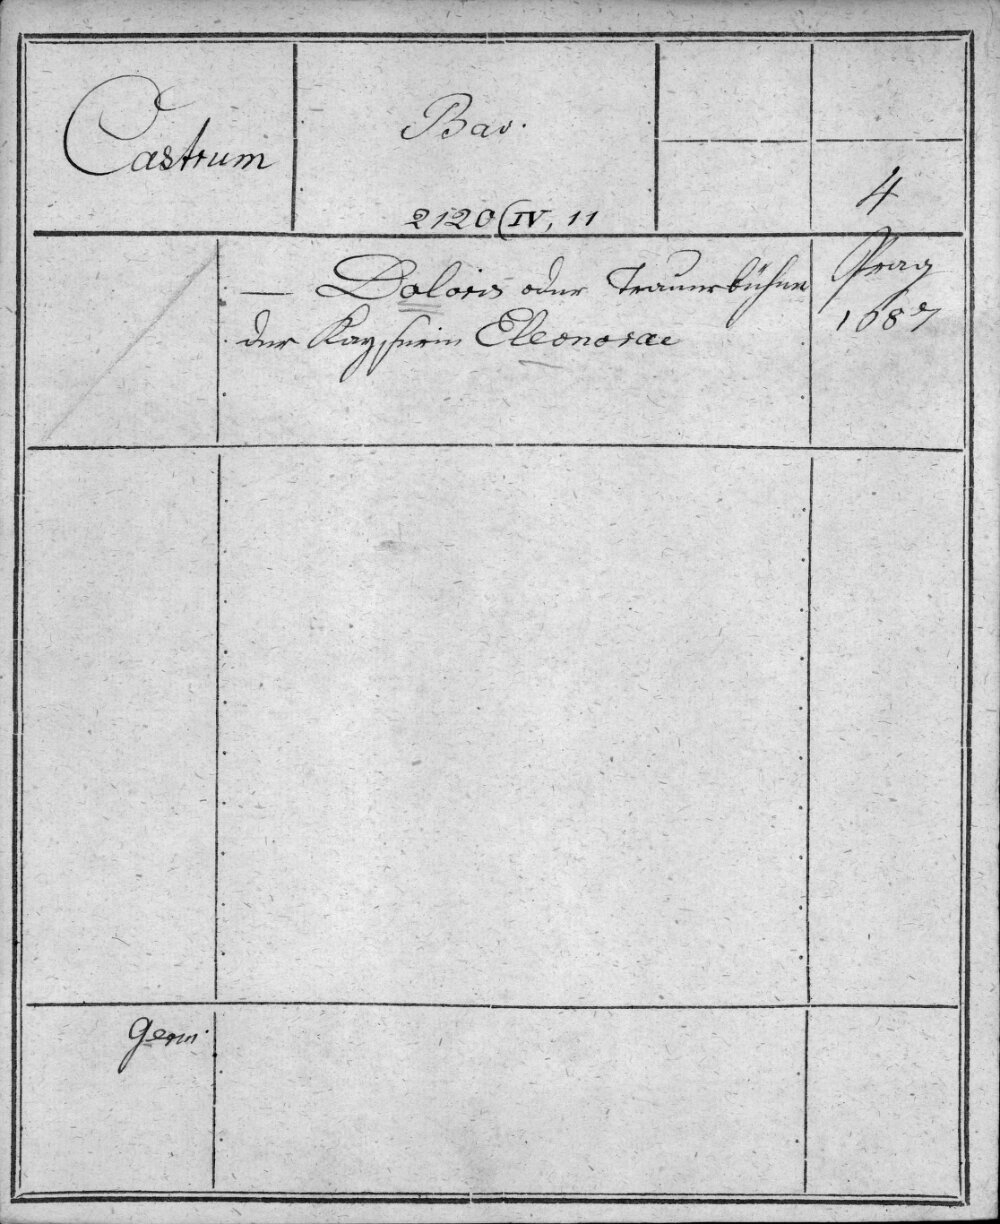 Castrum
Bav.
2120(IV, 11
4
— Doloris oder Trauerbühne
der Kayserin Eleonorae
Prag
1687
Germ.